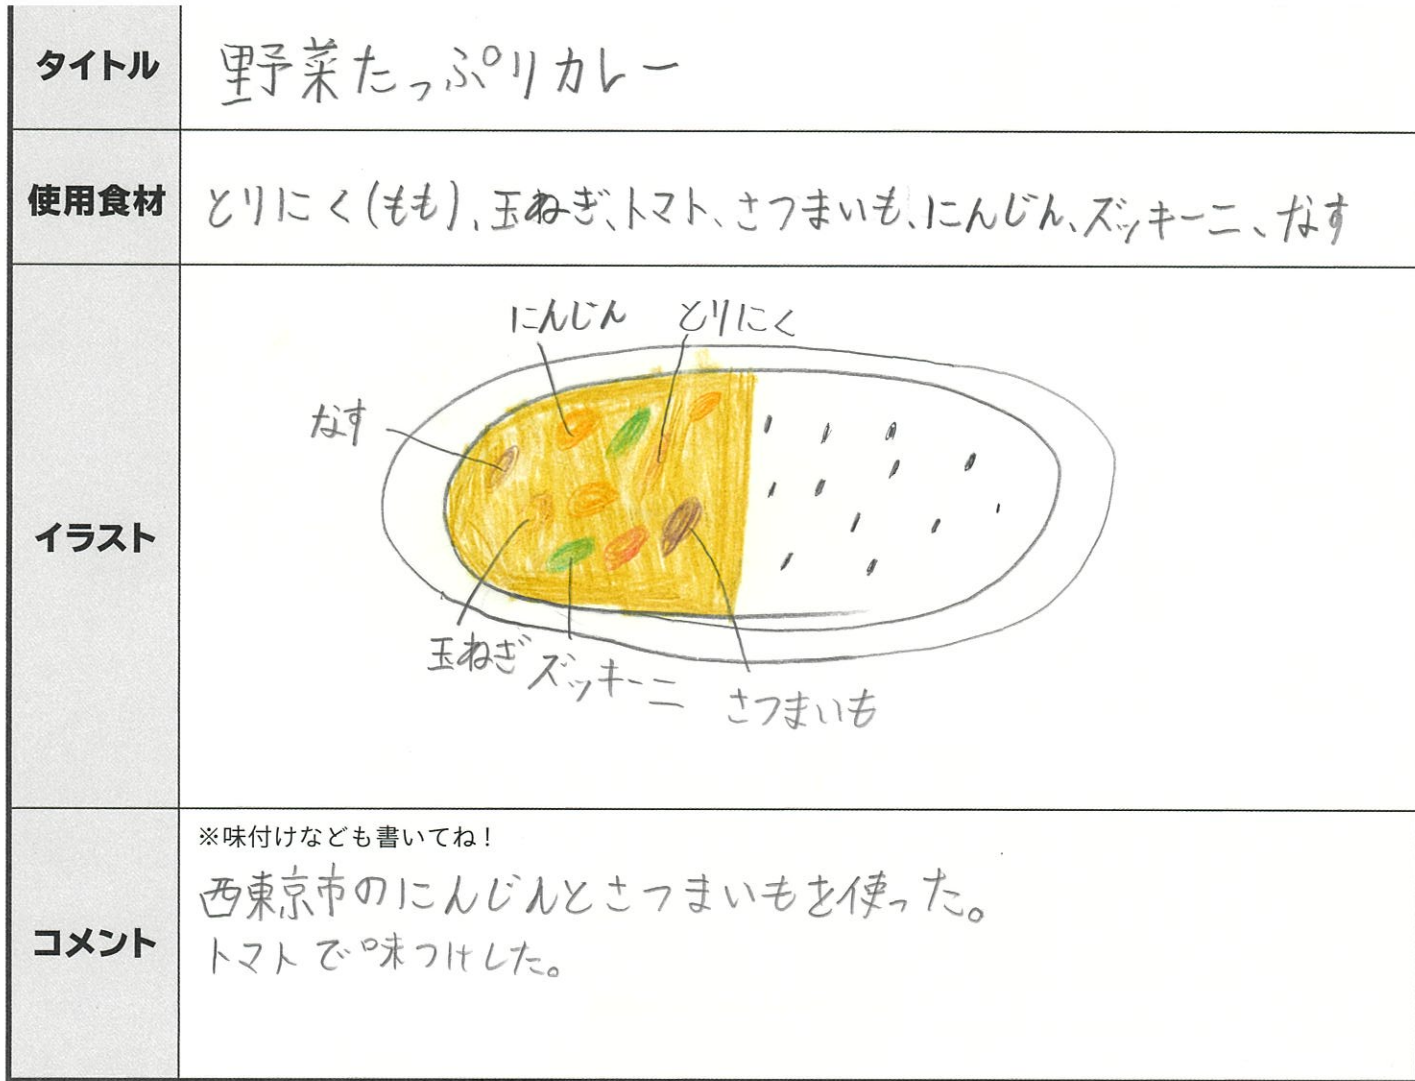 タイトル
野菜たっぷりカレー
使用食材
とりにく(もも)、玉ねぎ、トマト、さつまいも、にんじん、ズッキーニ、なす
イラスト
にんじん
とりにく
なす
玉ねぎ
ズッキーニ
さつまいも
コメント
※味付けなども書いてね！
西東京市のにんじんとさつまいもを使った。
トマトで味つけした。